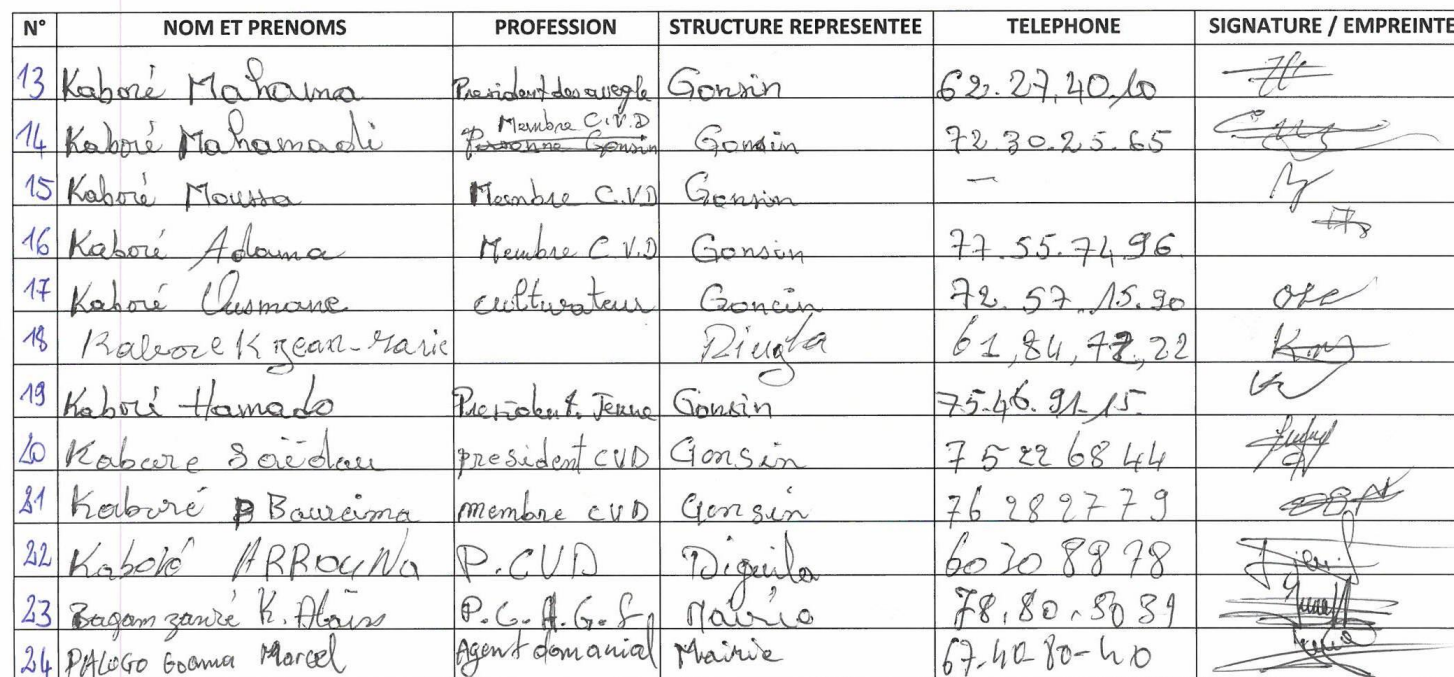 N° NOM ET PRENOMS PROFESSION STRUCTURE REPRESENTEE TELEPHONE SIGNATURE / EMPREINTE
13 Kaboré Mahama President des avegle Gonsin 62.27.40.10
14 Kaboré Mahamadi Membre C.V.D Gonsin 72.30.25.65
15 Kaboré Moussa Membre C.V.D Gonsin —
16 Kaboré Adama Membre C.V.D Gonsin 77.55.74.96
17 Kaboré Ousmane cultivateur Goncin 72.57.15.90
18 Kabore K Jean-Marie 61,84,72,22
19 Kaboré Hamado President. Jeune Gonsin 75.46.91.15.
20 Kabore Saïdou president CVD Gonsin 75 22 68 44
21 Kaboré B Boureima membre CVD Gonsin 76 28 27 79
22 Kaboré AROUNA P.CVD Diguila 60 30 89 78
23 Bagamzanré K. P.C.A.G.F Mairie 78.80.30 39
24 PALOGO Goama Marcel Agent domanial Mairie 67-40-80-40